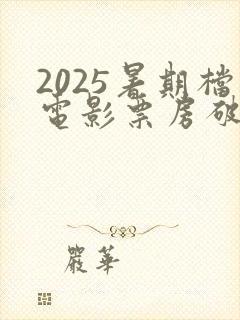 2025暑期檔
電影票房破
嚴華